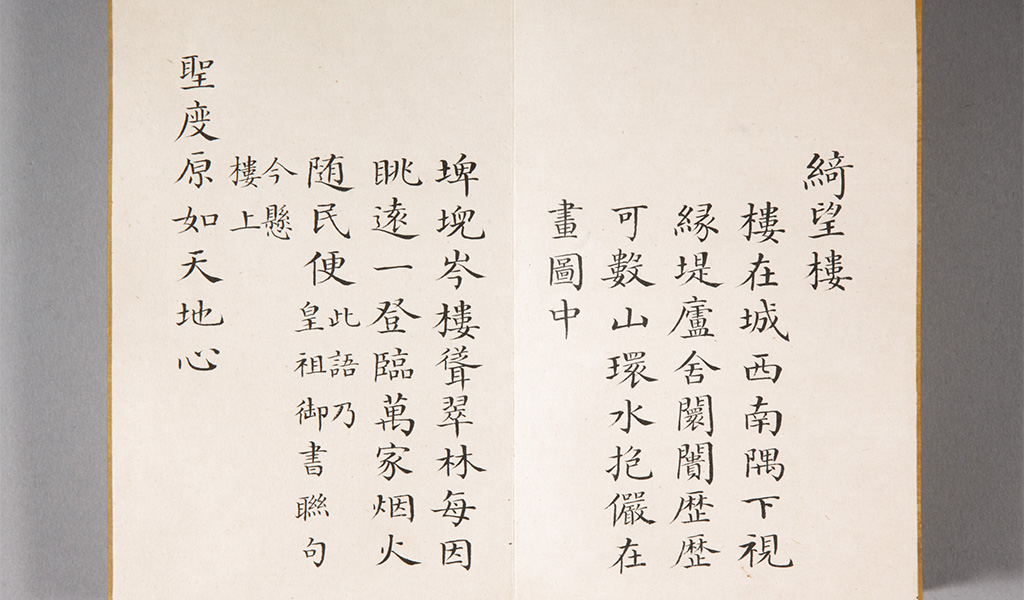 綺望樓
樓在城西南隅下視
縁堤廬舍闤闠歴歴
可數山環水抱儼在
畫圖中
埤堄岑樓聳翠林每因
眺遠一登臨萬家烟火
随民便此語乃
皇祖御書聯句
今懸
樓上
聖度原如天地心